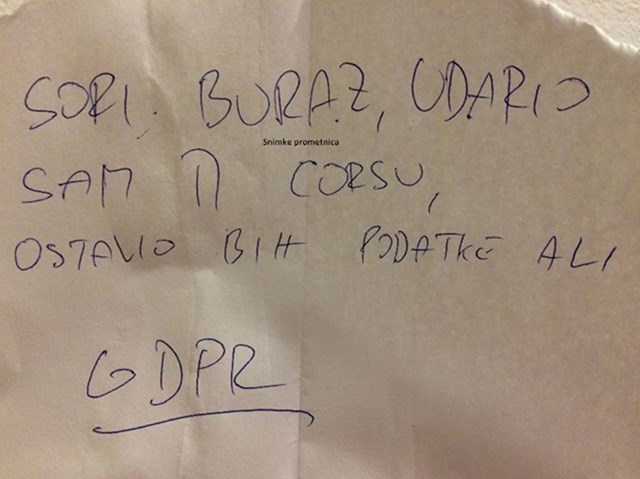 SORI. BURAZ, UDARIO
Snimke prometnica
SAM TI CORSU,
OSTAVIO BIH PODATKE ALI
GDPR